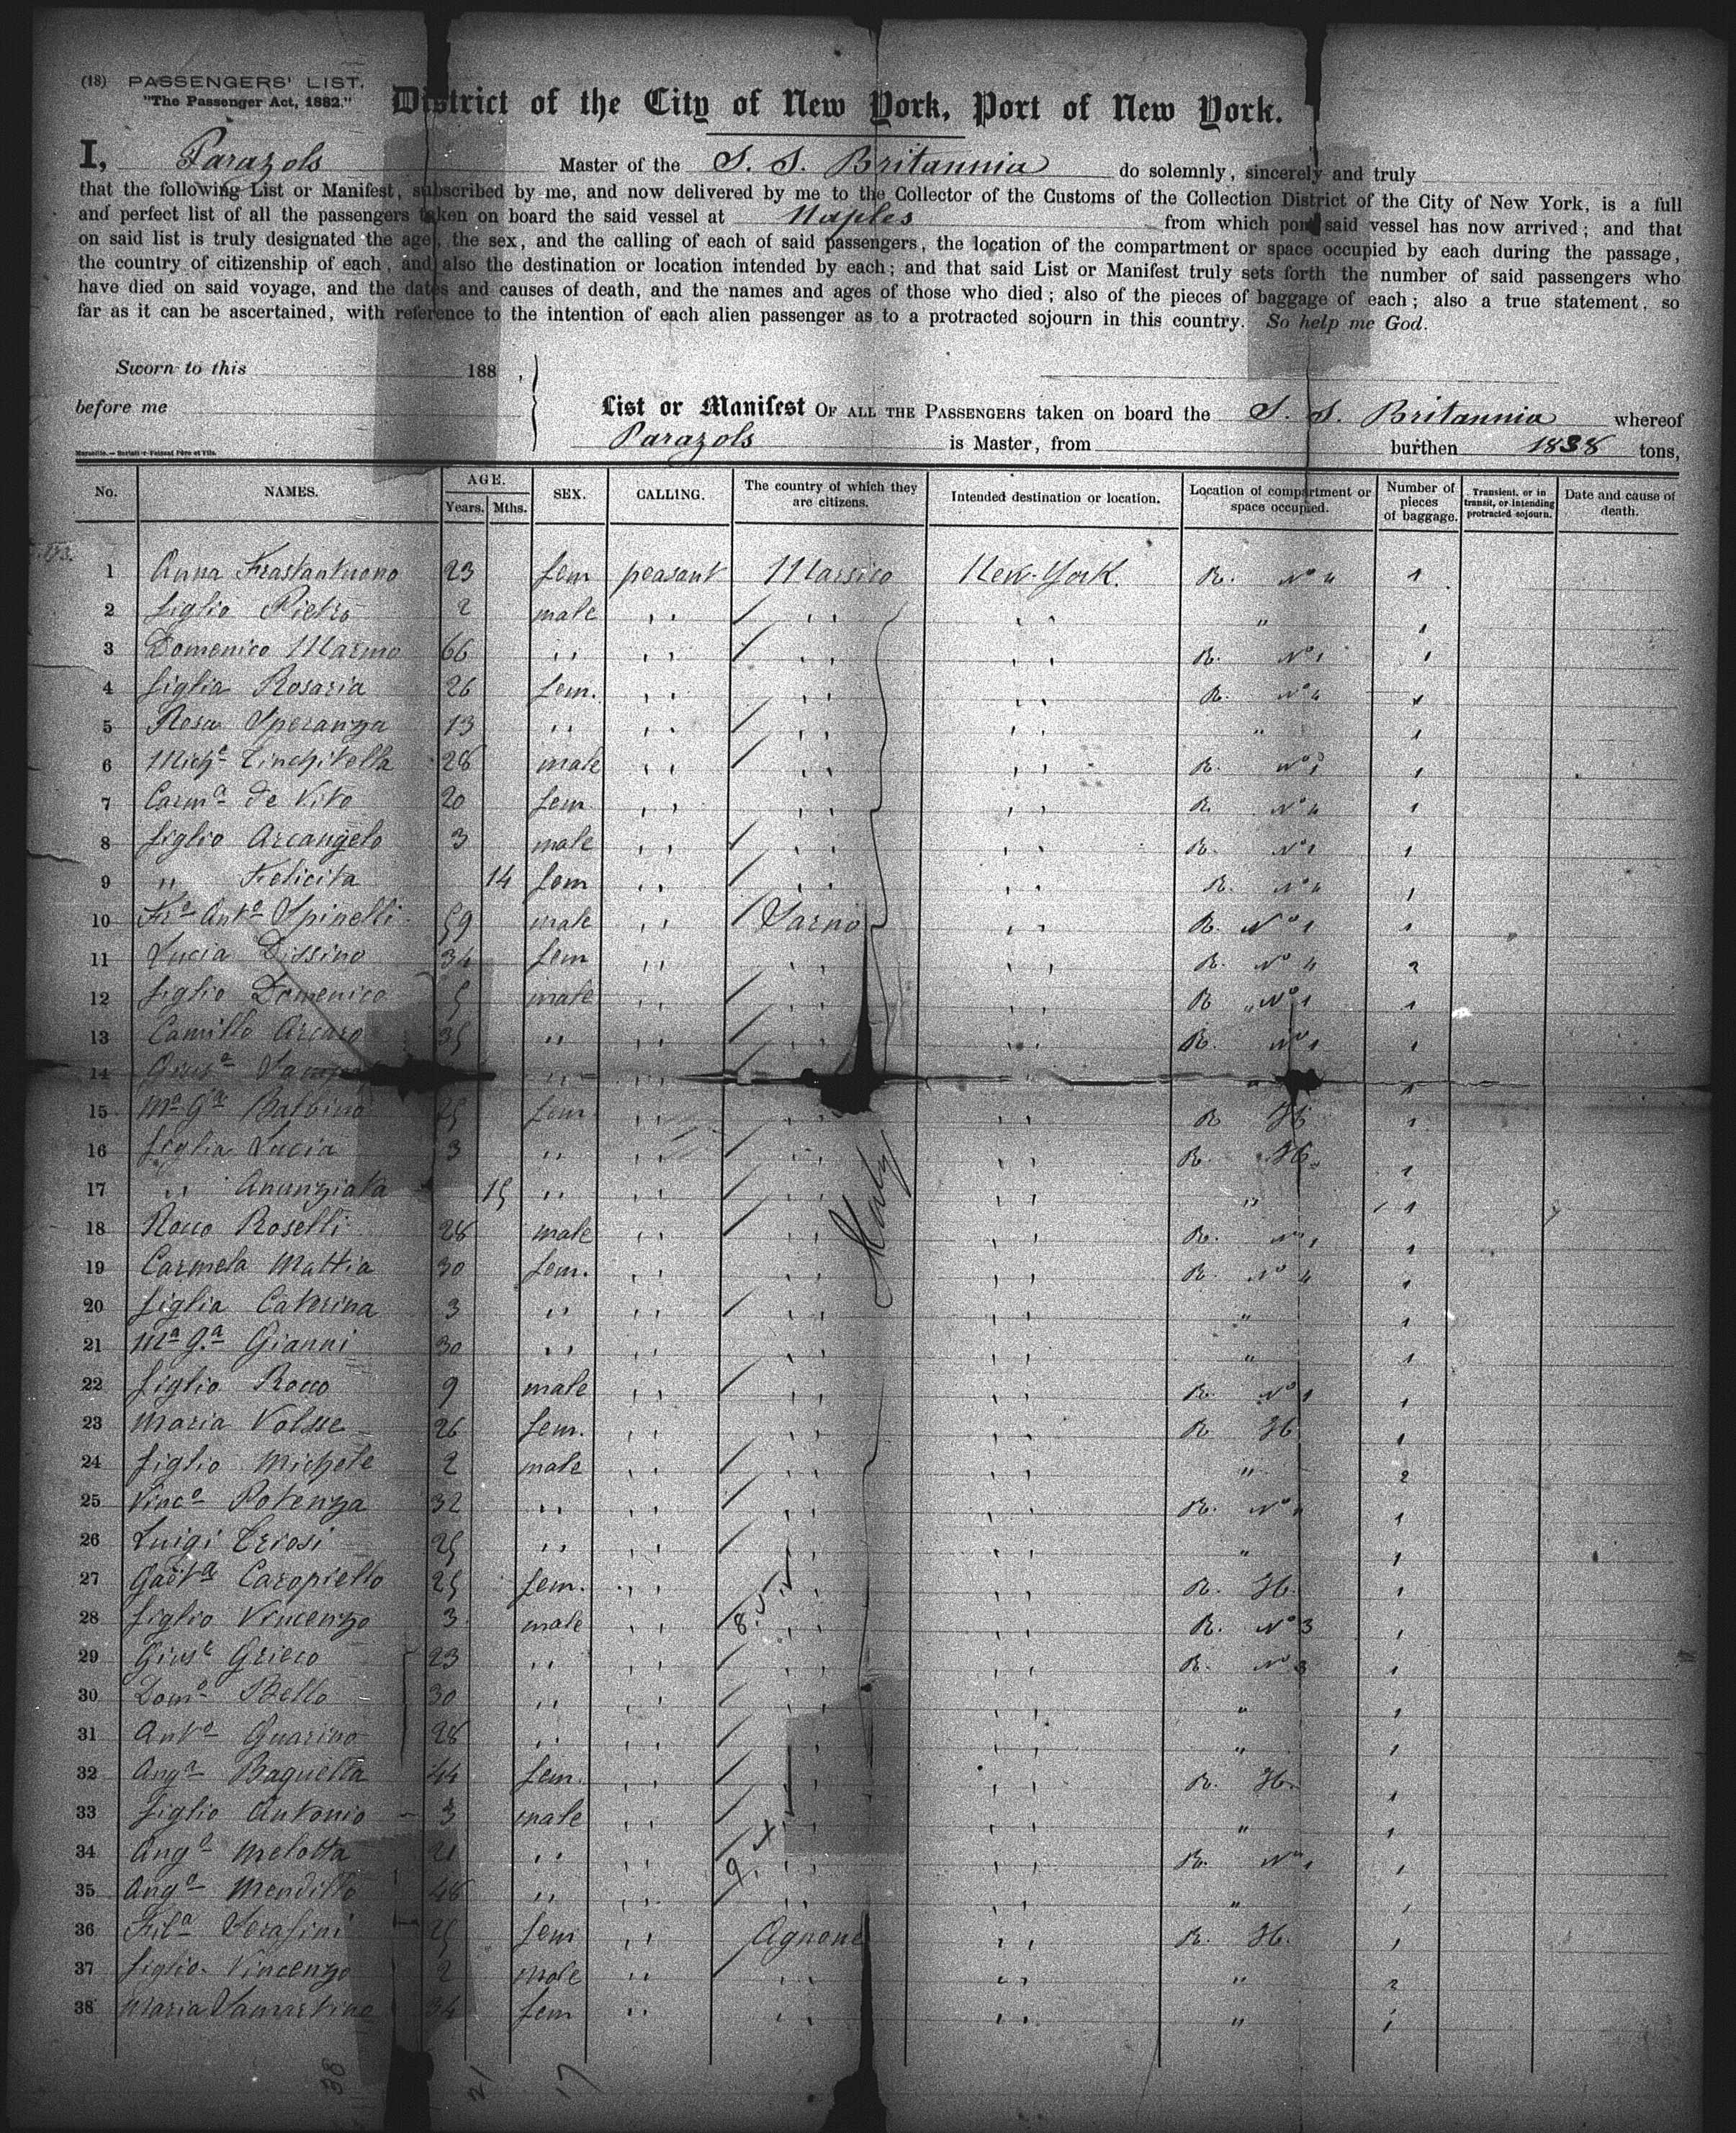 (18) PASSENGERS' LIST.
"The Passenger Act, 1882."
District of the City of New York, Port of New York.
I, Parazols Master of the S. S. Britannia do solemnly, sincerely and truly
that the following List or Manifest, subscribed by me, and now delivered by me to the Collector of the Customs of the Collection District of the City of New York, is a full
and perfect list of all the passengers taken on board the said vessel at Naples from which port said vessel has now arrived; and that
on said list is truly designated the age, the sex, and the calling of each of said passengers, the location of the compartment or space occupied by each during the passage,
the country of citizenship of each, and also the destination or location intended by each; and that said List or Manifest truly sets forth the number of said passengers who
have died on said voyage, and the dates and causes of death, and the names and ages of those who died; also of the pieces of baggage of each; also a true statement, so
far as it can be ascertained, with reference to the intention of each alien passenger as to a protracted sojourn in this country. So help me God.
Sworn to this 188 ,
before me
List or Manifest OF ALL THE PASSENGERS taken on board the S. S. Britannia whereof
Parazols is Master, from burthen 1838 tons,
No. NAMES. AGE. Years. Mths. SEX. CALLING. The country of which they are citizens. Intended destination or location. Location of compartment or space occupied. Number of pieces of baggage. Transient, or in transit, or intending protracted sojourn. Date and cause of death.
1 Anna Frastantuono 23 fem peasant Marsico New-York. R. No 4 1
2 figlio Pietro 2 male ,, ,, ,, " 1
3 Domenico Marmo 66 ,, ,, ,, ,, R. No 1 1
4 figlia Rosaria 26 fem. ,, ,, ,, R. No 4 1
5 Rosa Speranza 13 ,, ,, ,, ,, " 1
6 Micha Tinchitella 28 male ,, ,, ,, R. No 1 1
7 Carma de Vito 20 fem ,, ,, ,, R. No 4 1
8 figlio Arcangelo 3 male ,, ,, ,, R. No 1 1
9 ,, Felicita 14 fem ,, ,, ,, R. No 4 1
10 Fro Anto Spinelli 59 male ,, Sarno ,, R. No 1 1
11 Lucia Dissino 34 fem ,, ,, ,, R. No 4 2
12 figlio Domenico 5 male ,, ,, ,, R ,, No 1 1
13 Camillo Arcaro 35 ,, ,, ,, ,, R. No 1 1
14 ,, 1
15 Ma Ga Balbino 25 fem ,, ,, ,, R H 1
16 figlia Lucia 3 ,, ,, ,, ,, R. H. 1
17 ,, Anunziata 15 ,, ,, ,, ,, ,, 1
18 Rocco Roselli 28 male ,, ,, ,, R. No 1 1
19 Carmela Mattia 30 fem. ,, ,, ,, R. No 4 1
Italy
20 figlia Caterina 3 ,, ,, ,, ,, " 1
21 Ma G.a Gianni 30 ,, ,, ,, ,, " 1
22 figlio Rocco 9 male ,, ,, ,, R. No 1 1
23 Maria 26 fem. ,, ,, ,, R H 1
24 figlio Michele 2 male ,, ,, ,, " 2
25 Vinco Potenza 32 ,, ,, ,, ,, R. No 1 1
26 Luigi 25 ,, ,, ,, ,, " 1
27 Gaeta Caropiello 25 fem. ,, ,, ,, R. H. 1
28 figlio Vincenzo 3 male ,, ,, ,, R. No 3 1
29 Giuse Grieco 23 ,, ,, ,, ,, R. No 3 1
30 Domo Bello 30 ,, ,, ,, ,, " 1
31 Anto Guarino 28 ,, ,, ,, ,, " 1
32 Anga Baguella 44 fem. ,, ,, ,, R. H. 1
33 figlio Antonio 3 male ,, ,, ,, " 1
34 Ango Melotta 21 ,, ,, ,, ,, R. No 1 1
35 Ango Mendillo 48 ,, ,, ,, ,, " 1
36 Fila Serafini 25 fem ,, Agnone ,, R. H. 1
37 figlio Vincenzo 2 male ,, ,, ,, " 2
38 Maria Samartino 34 fem ,, ,, ,, " 1
38 21 17